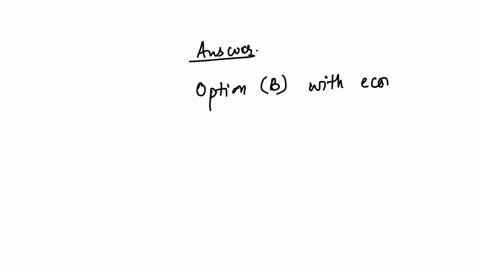 Answer.
Option (B) with econ